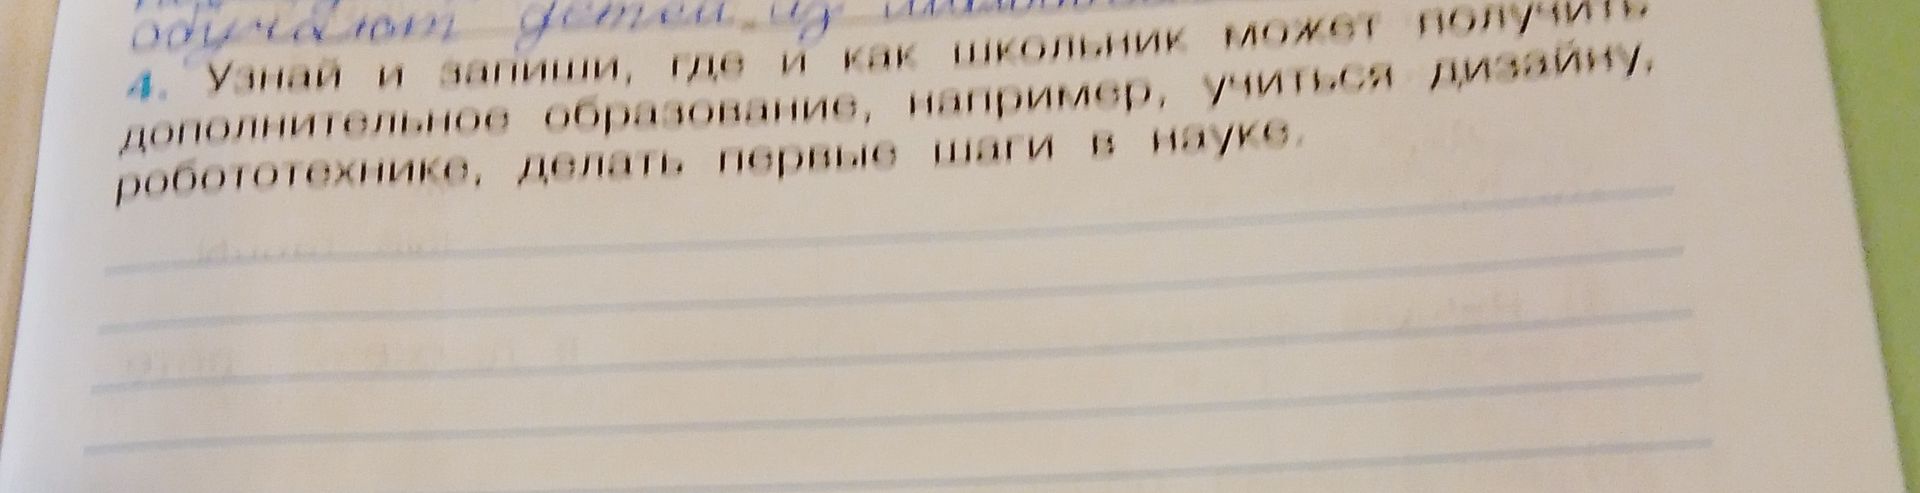 обучают детей из
4. Узнай и запиши, где и как школьник может получить
дополнительное образование, например, учиться дизайну,
робототехнике, делать первые шаги в науке.